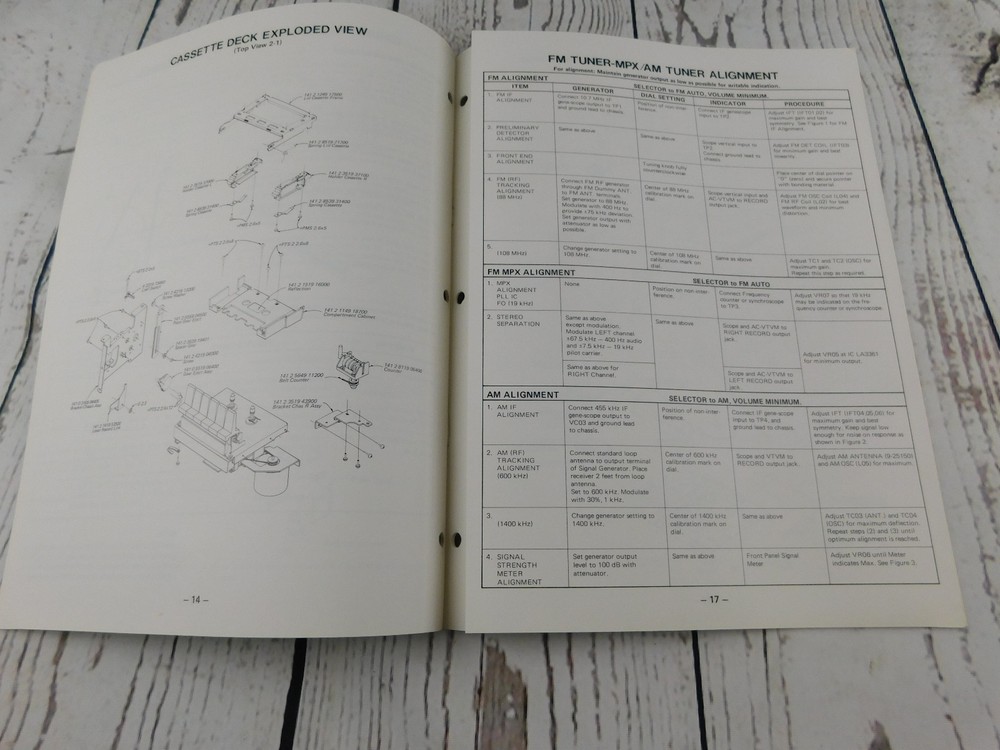 CASSETTE DECK EXPLODED VIEW
(Top View 2-1)
Compartment Cabinet
141 2 5949 11200
Belt Counter
Counter
141 2 3519 42900
Bracket Chas R Assy
– 14 –
FM TUNER-MPX/AM TUNER ALIGNMENT
For alignment: Maintain generator output as low as possible for suitable indication.
FM ALIGNMENT
SELECTOR to FM AUTO, VOLUME MINIMUM.
ITEM
GENERATOR
DIAL SETTING
INDICATOR
PROCEDURE
1. FM IF
ALIGNMENT
Connect 10.7 MHz IF
gene-scope output to TP1
and ground lead to chassis.
Position of non-inter-
ference.
Connect IF genescope
input to TP2.
maximum gain and best
symmetry. See Figure 1 for FM
IF Alignment.
2. PRELIMINARY
DETECTOR
ALIGNMENT
Same as above
Same as above
Scope vertical input to
TP3.
Connect ground lead to
chassis.
Adjust FM DET COIL
for maximum gain and best
linearity.
3. FRONT END
ALIGNMENT
Tuning knob fully
counterclockwise
Place center of dial pointer on
"0" (zero) and secure pointer
with bonding material.
4. FM (RF)
TRACKING
ALIGNMENT
(88 MHz)
Connect FM RF generator
through FM Dummy ANT.
to FM ANT. terminals.
Set generator to 88 MHz.
Modulate with 400 Hz to
provide ±75 kHz deviation.
Set generator output with
attenuator as low as
possible.
Center of 88 MHz
calibration mark on
dial.
Scope vertical input and
AC-VTVM to RECORD
output jack.
Adjust FM OSC Coil (L04) and
FM RF Coil (L02) for best
waveform and minimum
distortion.
5.
(108 MHz)
Change generator setting to
108 MHz.
Center of 108 MHz
calibration mark on
dial.
Same as above
Adjust TC1 and TC2 (OSC) for
maximum gain.
Repeat this step as required.
FM MPX ALIGNMENT
SELECTOR to FM AUTO
1. MPX
ALIGNMENT
PLL IC
FO (19 kHz)
None
Position on non-inter-
ference.
Connect Frequency
counter or synchroscope
to TP3.
Adjust VR07 so that 19 kHz
may be indicated on the fre-
quency counter or synchroscope.
2. STEREO
SEPARATION
Same as above
except modulation.
Modulate LEFT channel
±67.5 kHz – 400 Hz audio
and ±7.5 kHz – 19 kHz
pilot carrier.
Same as above
Scope and AC-VTVM to
RIGHT RECORD output
jack.
Adjust VR05 at IC LA3361
for minimum output.
Same as above for
RIGHT Channel.
Scope and AC-VTVM to
LEFT RECORD output
jack.
AM ALIGNMENT
SELECTOR to AM, VOLUME MINIMUM.
1. AM IF
ALIGNMENT
Connect 455 kHz IF
gene-scope output to
VC03 and ground lead
to chassis.
Position of non-inter-
ference.
Connect IF gene-scope
input to TP4, and
ground lead to chassis.
Adjust IFT (IFT04,05,06) for
maximum gain and best
symmetry. Keep signal low
enough for noise on response as
shown in Figure 2.
2. AM (RF)
TRACKING
ALIGNMENT
(600 kHz)
Connect standard loop
antenna to output terminal
of Signal Generator. Place
receiver 2 feet from loop
antenna.
Set to 600 kHz. Modulate
with 30%, 1 kHz.
Center of 600 kHz
calibration mark on
dial.
Scope and VTVM to
RECORD output jack.
Adjust AM ANTENNA (9-25150)
and AM OSC (L05) for maximum.
3.
(1400 kHz)
Change generator setting to
1400 kHz.
Center of 1400 kHz
calibration mark on
dial.
Same as above
Adjust TC03 (ANT.) and TC04
(OSC) for maximum deflection.
Repeat steps (2) and (3) until
optimum alignment is reached.
4. SIGNAL
STRENGTH
METER
ALIGNMENT
Set generator output
level to 100 dB with
attenuator.
Same as above
Front Panel Signal
Meter
Adjust VR06 until Meter
indicates Max. See Figure 3.
– 17 –